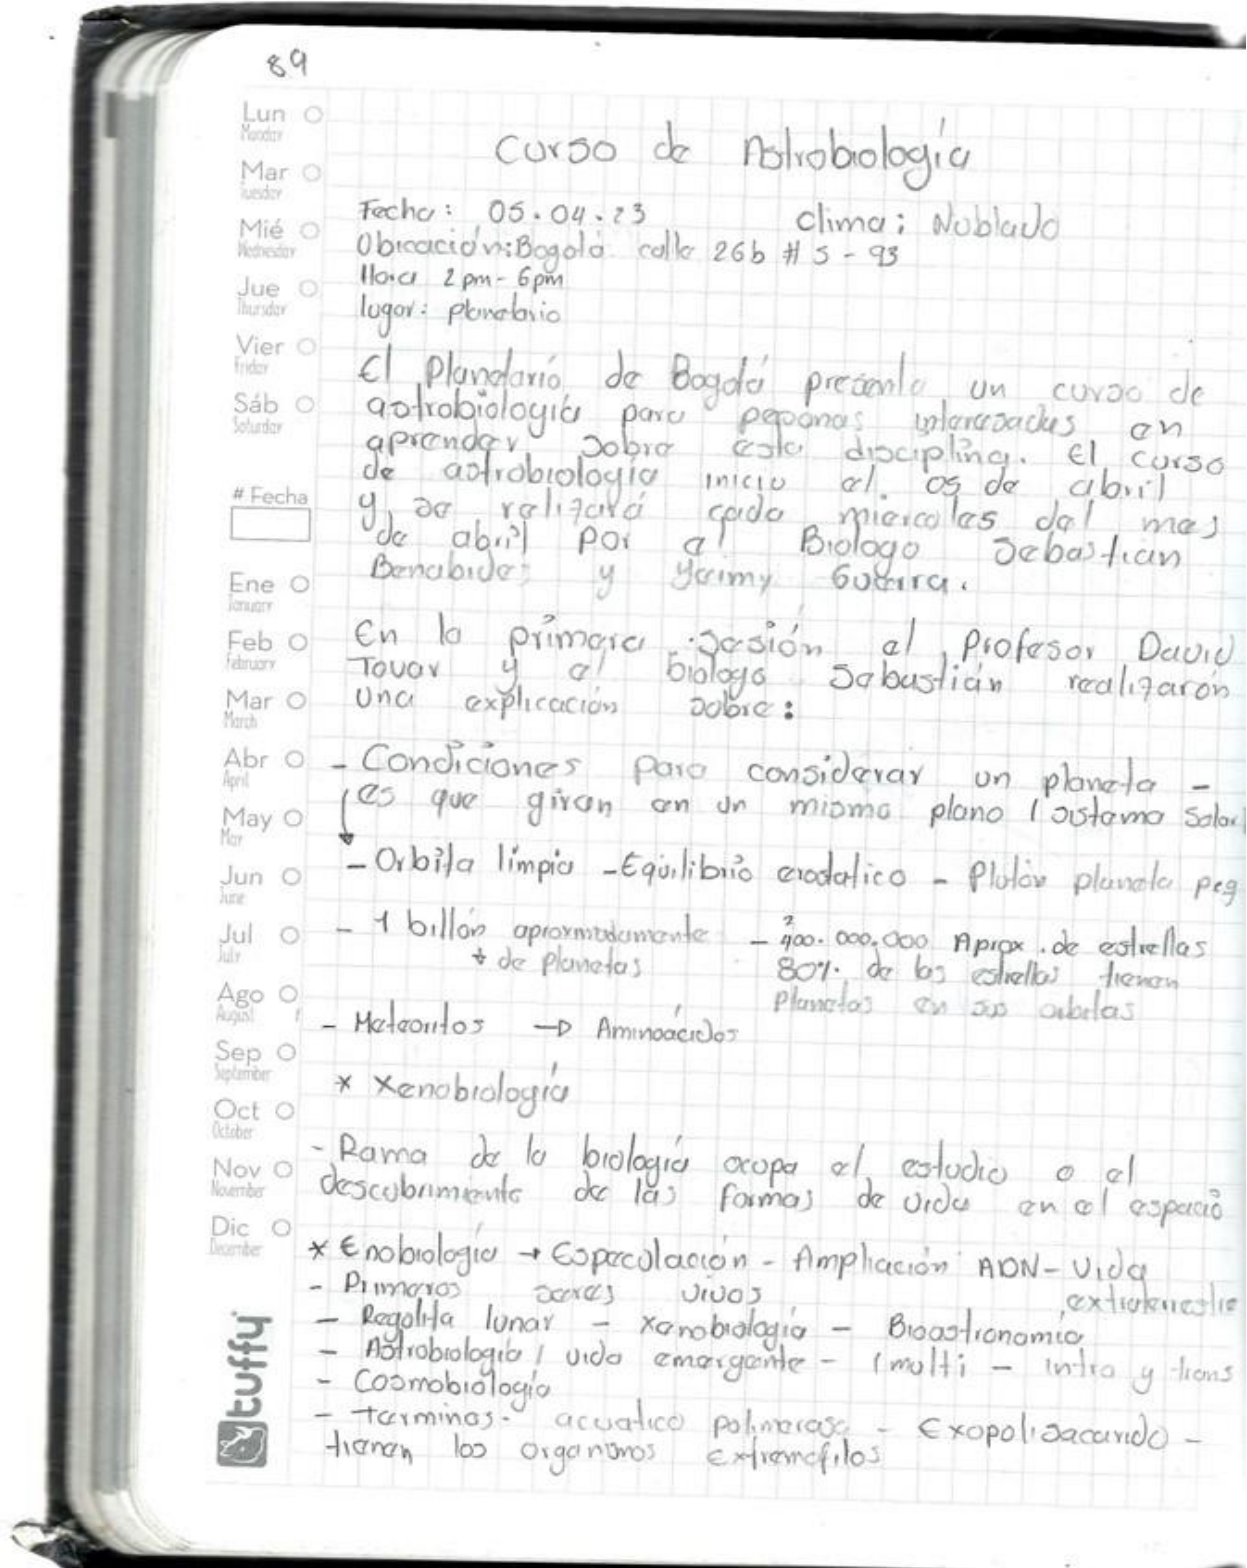 89
Lun
Monday
Mar
Tuesday
Mié
Wednesday
Jue
Thursday
Vier
Friday
Sáb
Saturday
# Fecha
Ene
January
Feb
February
Mar
March
Abr
April
May
May
Jun
June
Jul
July
Ago
August
Sep
September
Oct
October
Nov
November
Dic
December
tuffy
Curso de Astrobiología
Fecha: 05.04.23 Clima: Nublado
Obicación: Bogotá calle 26b # 5-93
Hora 2pm-6pm
lugar: planetario
El Planetario de Bogotá presenta un curso de
astrobiología para pesonas interesadas en
aprender sobre esta disciplina. El curso
de astrobiología inicio el 05 de abril
y se relizará cada miercoles del mes
de abril por el Biologo Sebastian
Benabides y Yeimy Guerra.
En la primera sesión el Profesor David
Tovar y el biologo Sabastián realizarón
una explicación sobre:
- Condiciones para considerar un planeta -
es que giran en un mismo plano / sistema solar
- Orbita limpia - Equilibrio - Plutón planeta peq
- 1 billón aproxmadamente - 400.000.000 Aprox. de estrellas
+ de planetas 80% de las estrellas tienen
Planetas en sus orbitas
- Meteoritos → Aminoácidos
* Xenobiología
- Rama de la biología ocupa el estudio o el
descubrimiento de las formas de vida en el espacio
* Enobiología → Especulación - Ampliación ADN - Vida
- Primeros seres vivos extraterrestre
- Regolita lunar - xenobiología - Bioastronomía
- Astrobiología / vida emergente - (multi - intra y trans
- Cosmobiología
- terminos - acuatico polimerasa - Exopolisacarido -
tienen los organismos extremofilos